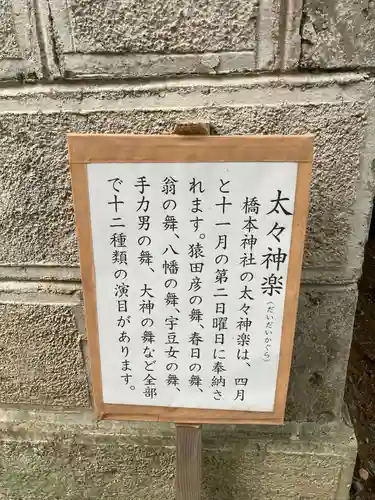 太々神楽(だいだいかぐら)
橋本神社の太々神楽は、四月
と十一月の第二日曜日に奉納さ
れます。猿田彦の舞、春日の舞、
翁の舞、八幡の舞、宇豆女の舞、
手力男の舞、大神の舞など全部
で十二種類の演目があります。